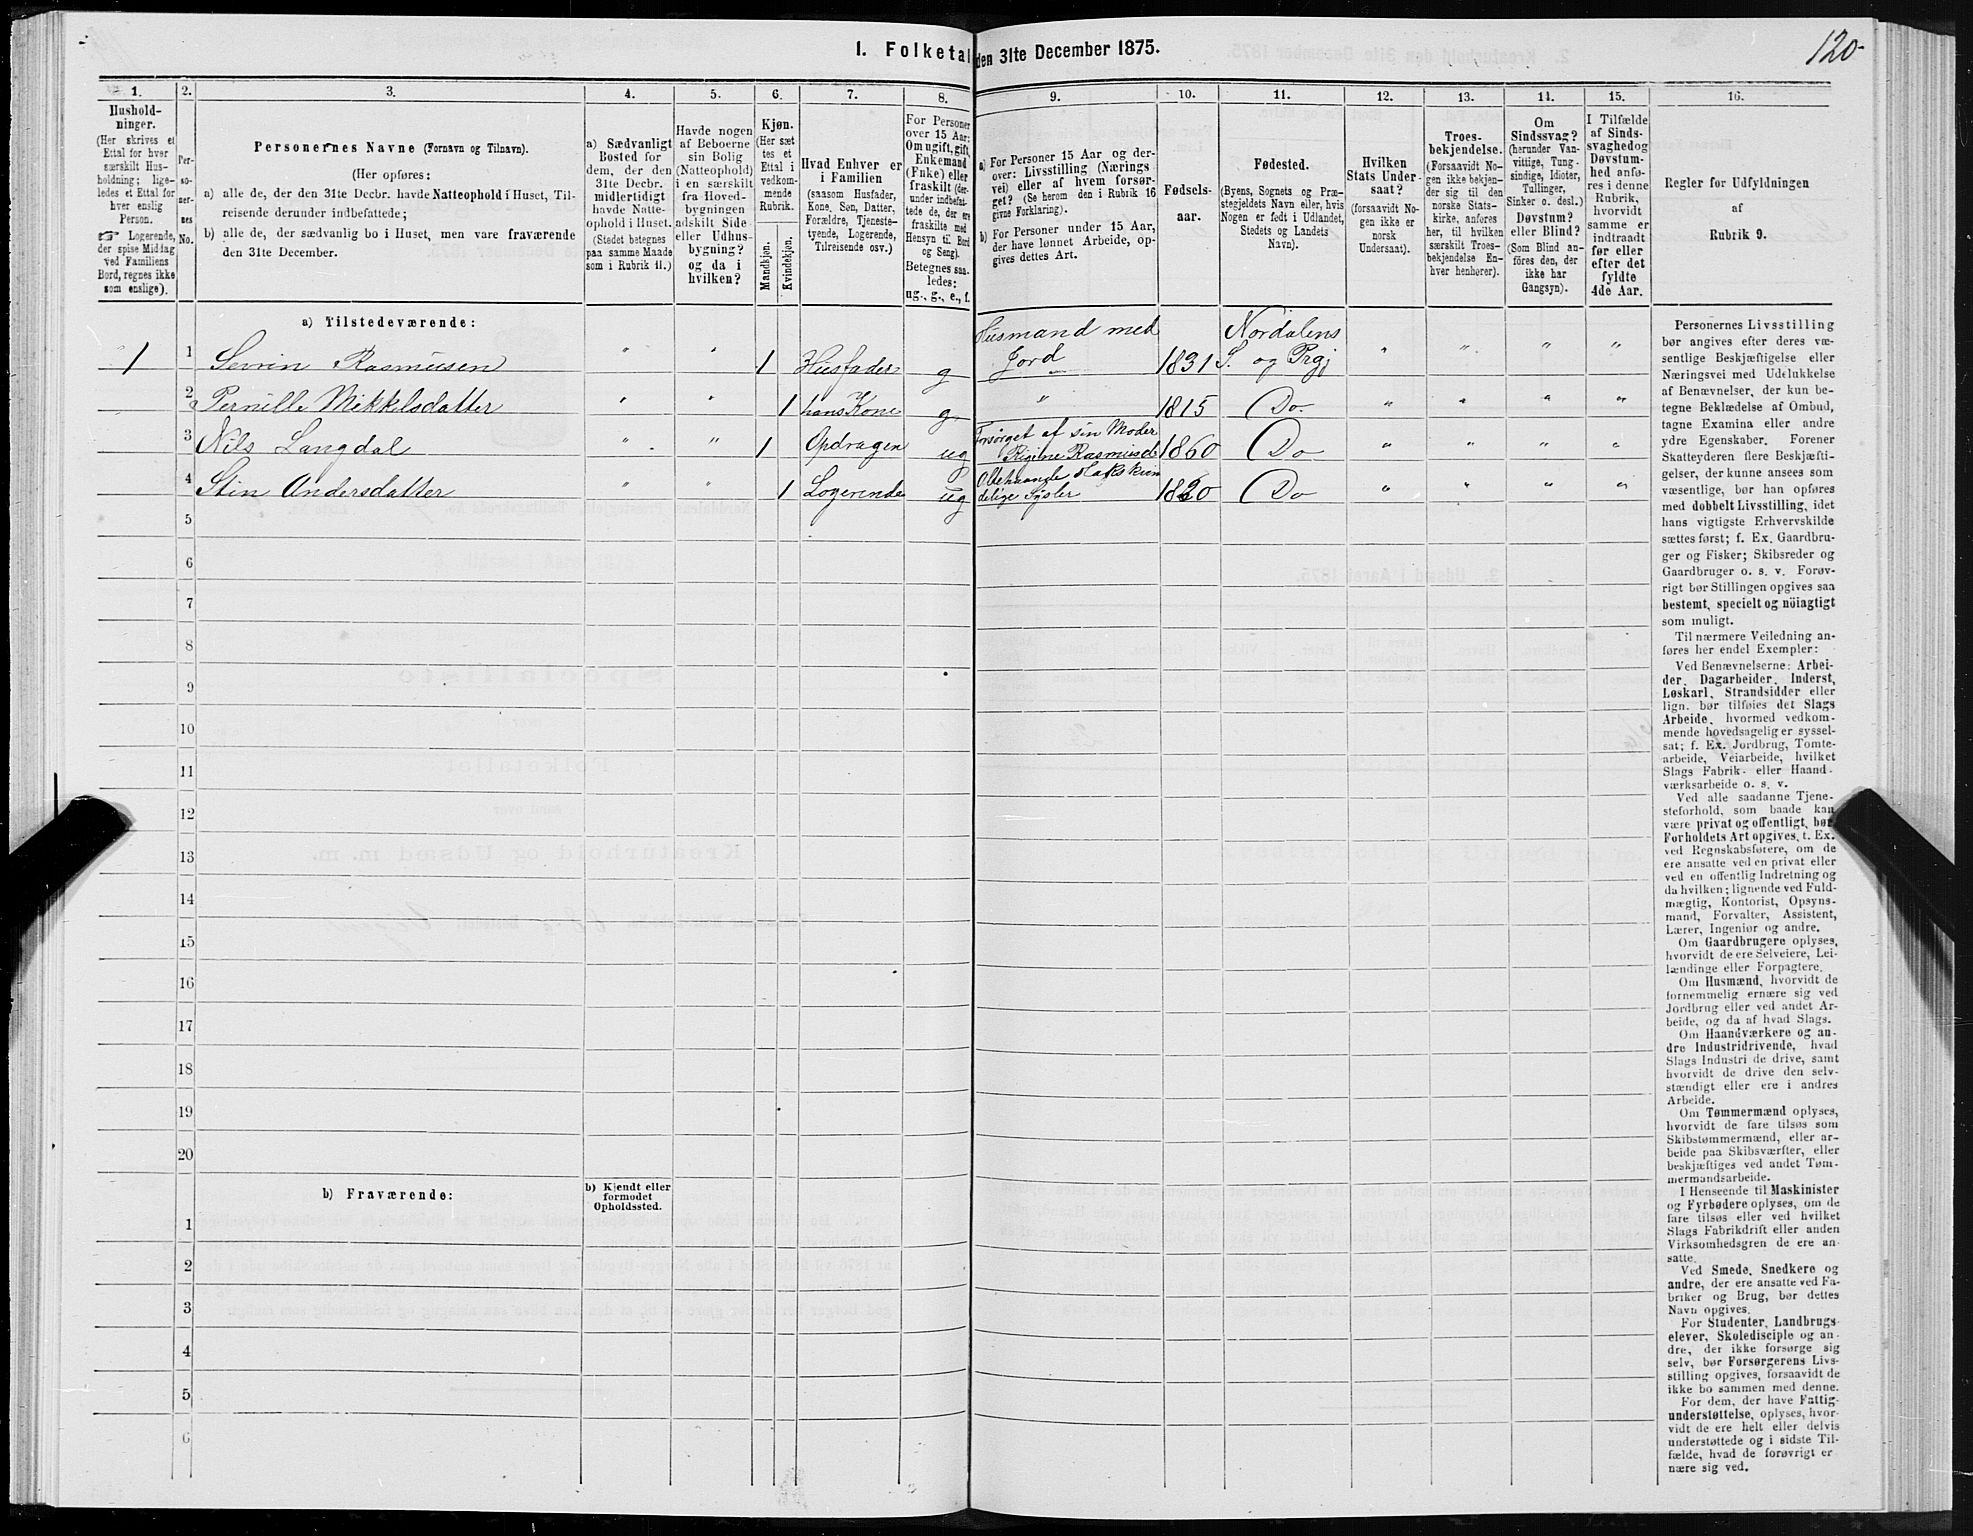 120
1. Folketal den 31te December 1875.
1.
2.
3.
4.
5.
6.
7.
8.
9.
10.
11.
12.
13.
14.
15.
16.
Hushold-
ninger.
(Her skrives et
Ettal for hver
særskilt Hus-
holdning; lige-
ledes et Ettal for
hver enslig
Person.
☞ Logerende,
der spise Middag
ved Familiens
Bord, regnes ikke
som enslige).
Per-
so-
ner-
nes
No.
Personernes Navne (Fornavn og Tilnavn).
(Her opføres:
a) alle de, der den 31te Decbr. havde Natteophold i Huset, Til-
reisende derunder indbefattede;
b) alle de, der sædvanlig bo i Huset, men vare fraværende
den 31te December.
a) Sædvanligt
Bosted for
dem, der den
31te Decbr.
midlertidigt
havde Natte-
ophold i Huset.
(Stedet betegnes
paa samme Maade
som i Rubrik 11.)
Havde nogen
af Beboerne
sin Bolig
(Natteophold)
i en særskilt
fra Hoved-
bygningen
adskilt Side-
eller Udhus-
bygning?
og da i
hvilken?
Kjøn.
(Her sæt
tes et
Ettal i
vedkom-
mende
Rubrik.
Mandkjøn.
Kvindekjøn.
Hvad Enhver er
i Familien
(saasom Husfader,
Kone, Søn, Datter,
Forældre, Tjeneste-
tyende, Logerende,
Tilreisende osv.)
For Personer
over 15 Aar:
Om ugift, gift,
Enkemand
(Enke) eller
fraskilt (der-
under indbefat-
tede de, der ere
fraskilte med
Hensyn til Bord
og Seng).
Betegnes saa-
ledes:
ug., g., e., f.
a) For Personer 15 Aar og der-
over: Livsstilling (Nærings
vei) eller af hvem forsør-
get? (Se herom den i Rubrik 16
givne Forklaring).
b) For Personer under 15 Aar,
der have lønnet Arbeide, op-
gives dettes Art.
Fødsels-
aar.
Fødested.
(Byens, Sognets og Præ-
stegjeldets Navn eller, hvis
Nogen er født i Udlandet,
Stedets og Landets
Navn).
Hvilken
Stats Under-
saat?
(forsaavidt No-
gen ikke er
norsk
Undersaat).
Troes-
bekjendelse.
(Forsaavidt No-
gen ikke bekjen-
der sig til den
norske Stats-
kirke, anføres
her, til hvilken
særskilt Troes-
bekjendelse En-
hver henhører).
Om
Sindssvag?
(herunder Van-
vittige, Tung-
sindige, Idioter,
Tullinger,
Sinker o. desl.)
Døvstum?
eller Blind?
(Som Blind an-
föres den, der
ikke har
Gangsyn).
I Tilfælde
af Sinds-
svaghed og
Døvstum-
hed anfø-
res i denne
Rubrik,
hvorvidt
samme er
indtraadt
før eller
efter det
fyldte
4de Aar.
Regler for Udfyldningen
af
Rubrik 9.
a) Tilstedeværende:
1 1 Sevrin Rasmusen " " 1 Husfader g Husmand med Jord 1831 Nordalens S. og Prgj " " " "
2 Pernille Mikkelsdatter " " 1 hans Kone g " 1815 Do. " " " "
3 Nils Langdal " " 1 Opdragen ug Forsørget af sin Moder Rigine Rasmusd 1860 Do " " " "
4 Stin Andersdatter " " 1 Logerende ug delige Sysler Do " " " "
5
6
7
8
9
10
11
12
13
14
15
16
17
18
19
20
b) Fraværende:
b) Kjendt eller
formodet
Opholdssted.
1
2
3
4
5
6
Personernes Livsstilling
bør angives efter deres væ-
sentlige Beskjæftigelse eller
Næringsvei med Udelukkelse
af Benævnelser, der kun be-
tegne Beklædelse af Ombud,
tagne Examina eller andre
ydre Egenskaber. Forener
Skatteyderen flere Beskjæfti-
gelser, der kunne ansees som
væsentlige, bør han opføres
med dobbelt Livsstilling, idet
hans vigtigste Erhvervskilde
sættes først; f. Ex. Gaardbru-
ger og Fisker; Skibsreder og
Gaardbruger o. s. v. Forøv-
rigt bør Stillingen opgives saa
bestemt, specielt og nöiagtigt
som muligt.
Til nærmere Veiledning an-
føres her endel Exempler:
Ved Benævnelserne: Arbei-
der, Dagarbeider, Inderst,
Løskarl, Strandsidder eller
lign. bør tilføies det Slags
Arbeide, hvormed vedkom-
mende hovedsagelig er syssel-
sat; f. Ex. Jordbrug, Tomte-
arbeide, Veiarbeide, hvilket
Slags Fabrik- eller Haand-
værksarbeide o. s. v.
Ved alle saadanne Tjene-
steforhold, som baade kan
være privat og offentligt, bør
Forholdets Art opgives, t. Ex.
ved Regnskabsførere, om de
ere ansatte ved en privat eller
ved en offentlig Indretning og
da hvilken; lignende ved Fuld-
mægtig, Kontorist, Opsyns-
mand, Forvalter, Assistent,
Lærer, Ingeniør og andre.
Om Gaardbrugere oplyses,
hvorvidt de ere Selveiere, Lei-
lændinge eller Forpagtere.
Om Husmænd, hvorvidt de
fornemmelig ernære sig ved
Jordbrug eller ved andet Ar-
beide, og da af hvad Slags.
Om Haandværkere og an-
dre Industridrivende, hvad
Slags Industri de drive, samt
hvorvidt de drive den selv-
stændigt eller ere i andres
Arbeide.
Om Tømmermænd oplyses,
hvorvidt de fare tilsøs som
Skibstømmermænd, eller ar-
beide paa Skibsværfter, eller
beskjæftiges ved andet Tøm-
mermandsarbeide.
I Henseende til Maskinister
og Fyrbødere oplyses, om de
fare tilsøs eller ved hvilket
Slags Fabrikdrift eller anden
Virksomhedsgren de ere an-
satte.
Ved Smede, Snedkere og
andre, der ere ansatte ved Fa-
briker og Brug, bør dettes
Navn opgives.
For Studenter, Landbrugs-
elever, Skoledisciple og an-
dre, der ikke forsørge sig
selv, bør Forsørgerens Livs-
stilling opgives, forsaavidt de
ikke bo sammen med denne.
For dem, der have Fattig-
understøttelse, oplyses, hvor-
vidt de ere helt eller delvis
understøttede og i sidste Til-
fælde, hvad de forøvrigt er-
nære sig ved.